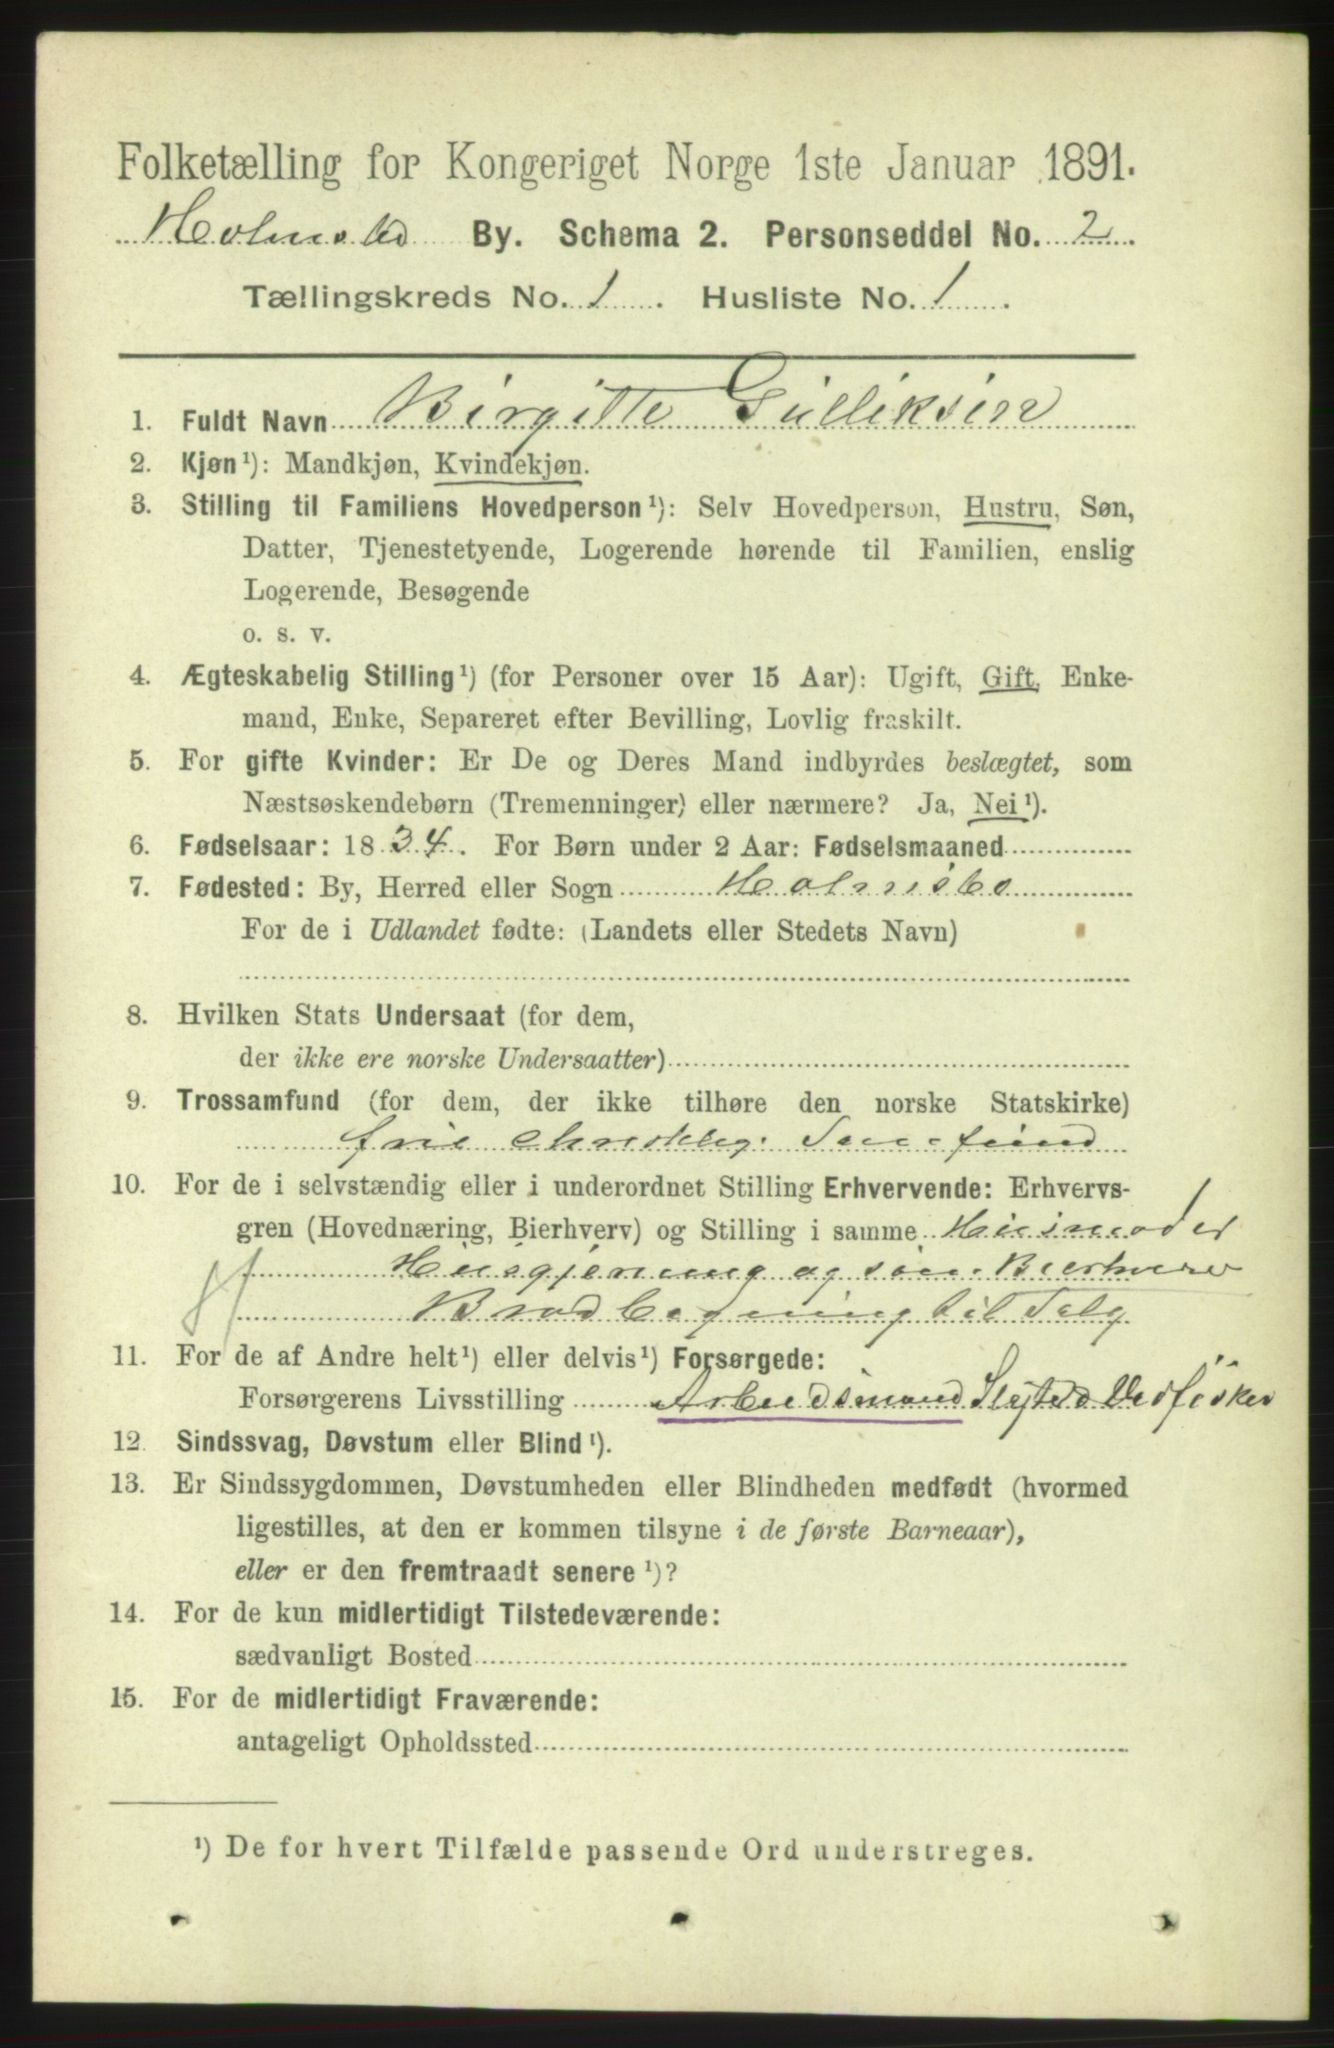 Folketælling for Kongeriget Norge 1ste Januar 1891.
Holmsbo By. Schema 2. Personseddel No. 2.
Tællingskreds No. 1. Husliste No. 1.
1. Fuldt Navn Birgitte Gulliksen
2. Kjøn¹): Mandkjøn, Kvindekjøn.
3. Stilling til Familiens Hovedperson¹): Selv Hovedperson, Hustru, Søn,
Datter, Tjenestetyende, Logerende hørende til Familien, enslig
Logerende, Besøgende
o. s. v.
4. Ægteskabelig Stilling¹) (for Personer over 15 Aar): Ugift, Gift, Enke-
mand, Enke, Separeret efter Bevilling, Lovlig fraskilt.
5. For gifte Kvinder: Er De og Deres Mand indbyrdes beslægtet, som
Næstsøskendebørn (Tremenninger) eller nærmere? Ja, Nei¹).
6. Fødselsaar: 1834. For Børn under 2 Aar: Fødselsmaaned
7. Fødested: By, Herred eller Sogn Holmsbo
For de i Udlandet fødte: (Landets eller Stedets Navn)
8. Hvilken Stats Undersaat (for dem,
der ikke ere norske Undersaatter)
9. Trossamfund (for dem, der ikke tilhøre den norske Statskirke)
frie Christelig:
10. For de i selvstændig eller i underordnet Stilling Erhvervende: Erhvervs-
gren (Hovednæring, Bierhverv) og Stilling i samme Husmoder
Husgjerning og som Bierhverv
Brødbagning til Salg
11. For de af Andre helt¹) eller delvis¹) Forsørgede:
Forsørgerens Livsstilling Arbeidsmand
12. Sindssvag, Døvstum eller Blind¹).
13. Er Sindssygdommen, Døvstumheden eller Blindheden medfødt (hvormed
ligestilles, at den er kommen tilsyne i de første Barneaar),
eller er den fremtraadt senere¹)?
14. For de kun midlertidigt Tilstedeværende:
sædvanligt Bosted
15. For de midlertidigt Fraværende:
antageligt Opholdssted
¹) De for hvert Tilfælde passende Ord understreges.